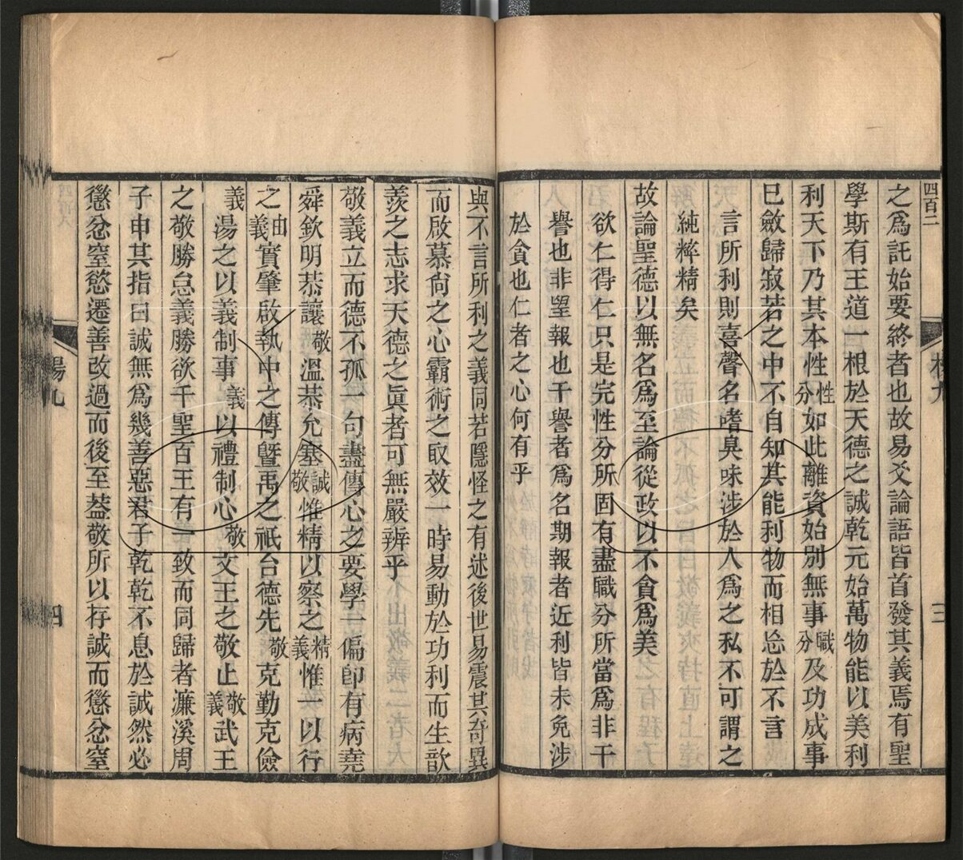 四百二
之爲託始要終者也故易爻論語皆首發其義焉有聖
學斯有王道一根於天德之誠乾元始萬物能以美利
利天下乃其本性性分如此離資始別無事職分及功成事
已斂歸寂若之中不自知其能利物而相忘於不言
言所利則喜聲名嗜臭味涉於人爲之私不可謂之
純粹精矣
故論聖德以無名爲至論從政以不貪爲美
欲仁得仁只是完性分所固有盡職分所當爲非干
譽也非望報也干譽者爲名期報者近利皆未免涉
於貪也仁者之心何有乎
與不言所利之義同若隱怪之有述後世易震其奇異
而啟慕尙之心霸術之取效一時易動於功利而生歆
羨之志求天德之眞者可無嚴辨乎
敬義立而德不孤一句盡傳心之要學一偏卽有病堯
舜欽明恭讓敬溫恭允塞誠敬惟精以察之精義惟一以行
之由義實肇啟執中之傳曁禹之祇台德先敬克勤克儉
義湯之以義制事義以禮制心敬文王之敬止敬義武王
之敬勝怠義勝欲千聖百王有一致而同歸者濂溪周
子申其指曰誠無爲幾善惡君子乾乾不息於誠然必
懲忿窒慾遷善改過而後至葢敬所以存誠而懲忿窒
楊九
四